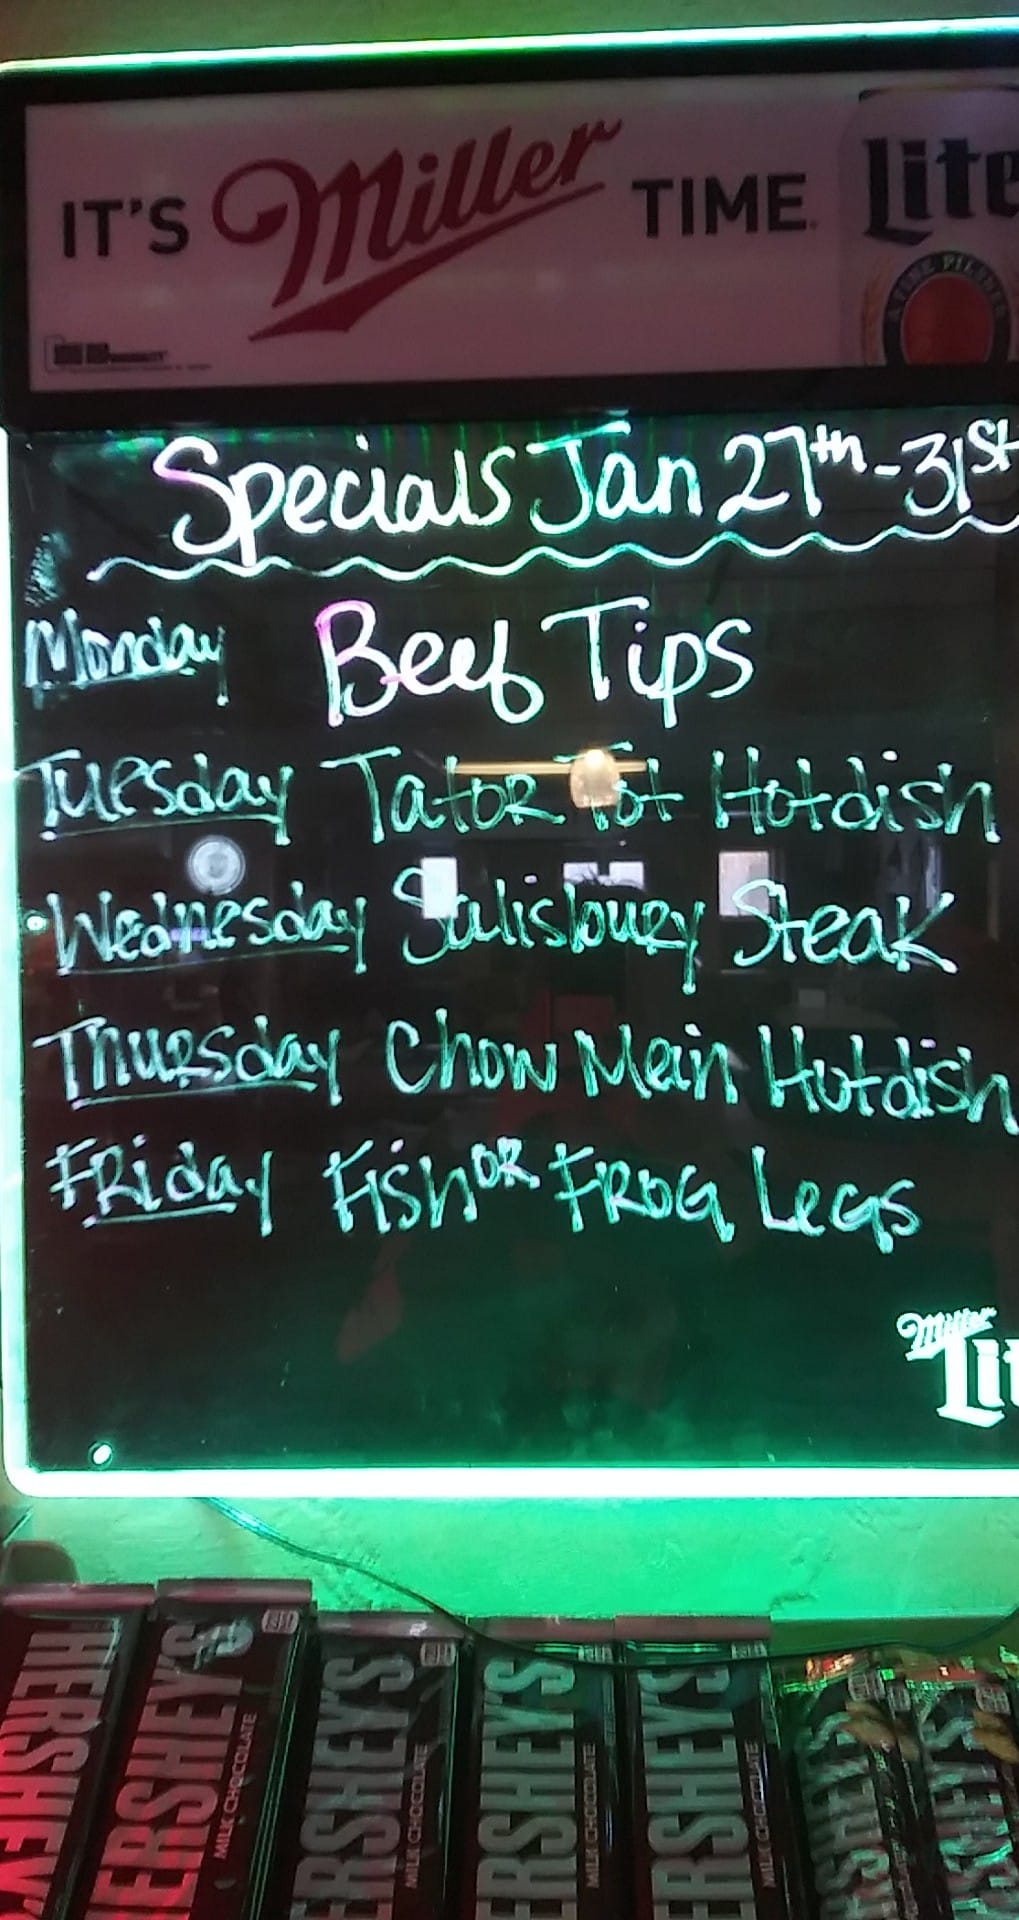 IT'S Miller TIME
Lite
A FINE PILSNER
Specials Jan 27th-31st
Monday Beef Tips
Tuesday Tator Tot Hotdish
Wednesday Salisbury Steak
Thursday Chow Mein Hotdish
Friday Fish or Frog Legs
Miller
Lit
HERSHEY'S
HERSHEY'S MILK CHOCOLATE
HERSHEY'S MILK CHOCOLATE
HERSHEY'S MILK CHOCOLATE
HERSHEY'S MILK CHOCOLATE
HERSHEY'S
HERSHEY'S